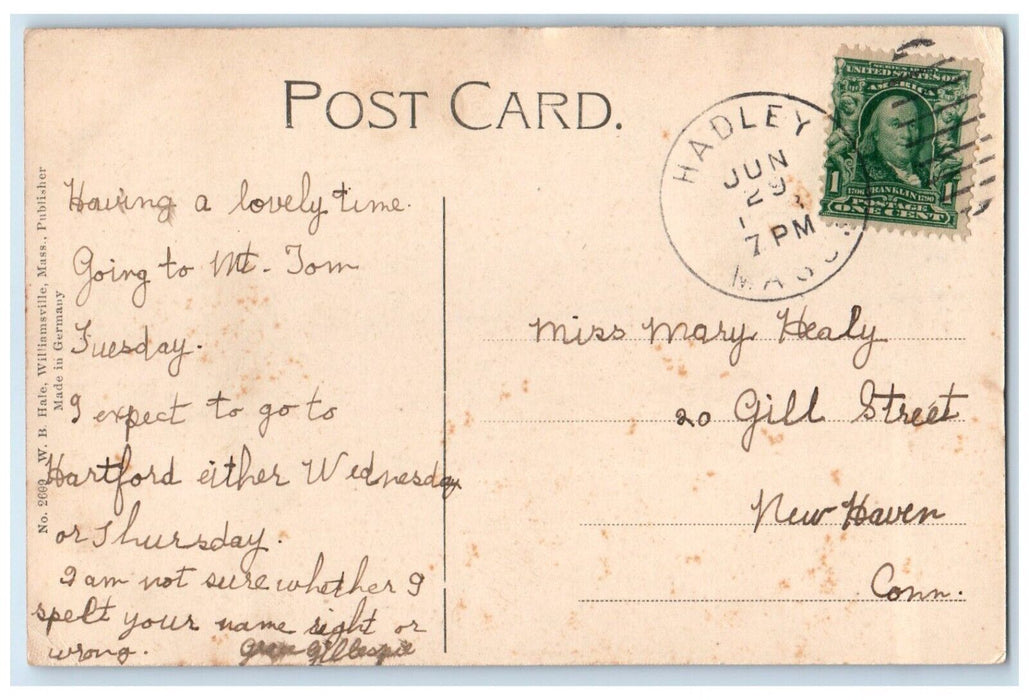 POST CARD.
No. 2602 W. B. Hale, Williamsville, Mass., Publisher
Made in Germany
Having a lovely time.
Going to Mt. Tom
Tuesday.
I expect to go to
Hartford either Wednesday
or Thursday.
I am not sure whether I
spelt your name right or
wrong.
Gillespie
HADLEY
JUN
29
7 PM
MASS
UNITED STATES OF
AMERICA
1 1
1706 FRANKLIN 1790
POSTAGE
ONE CENT
Miss Mary Healy
20 Gill Street
New Haven
Conn.